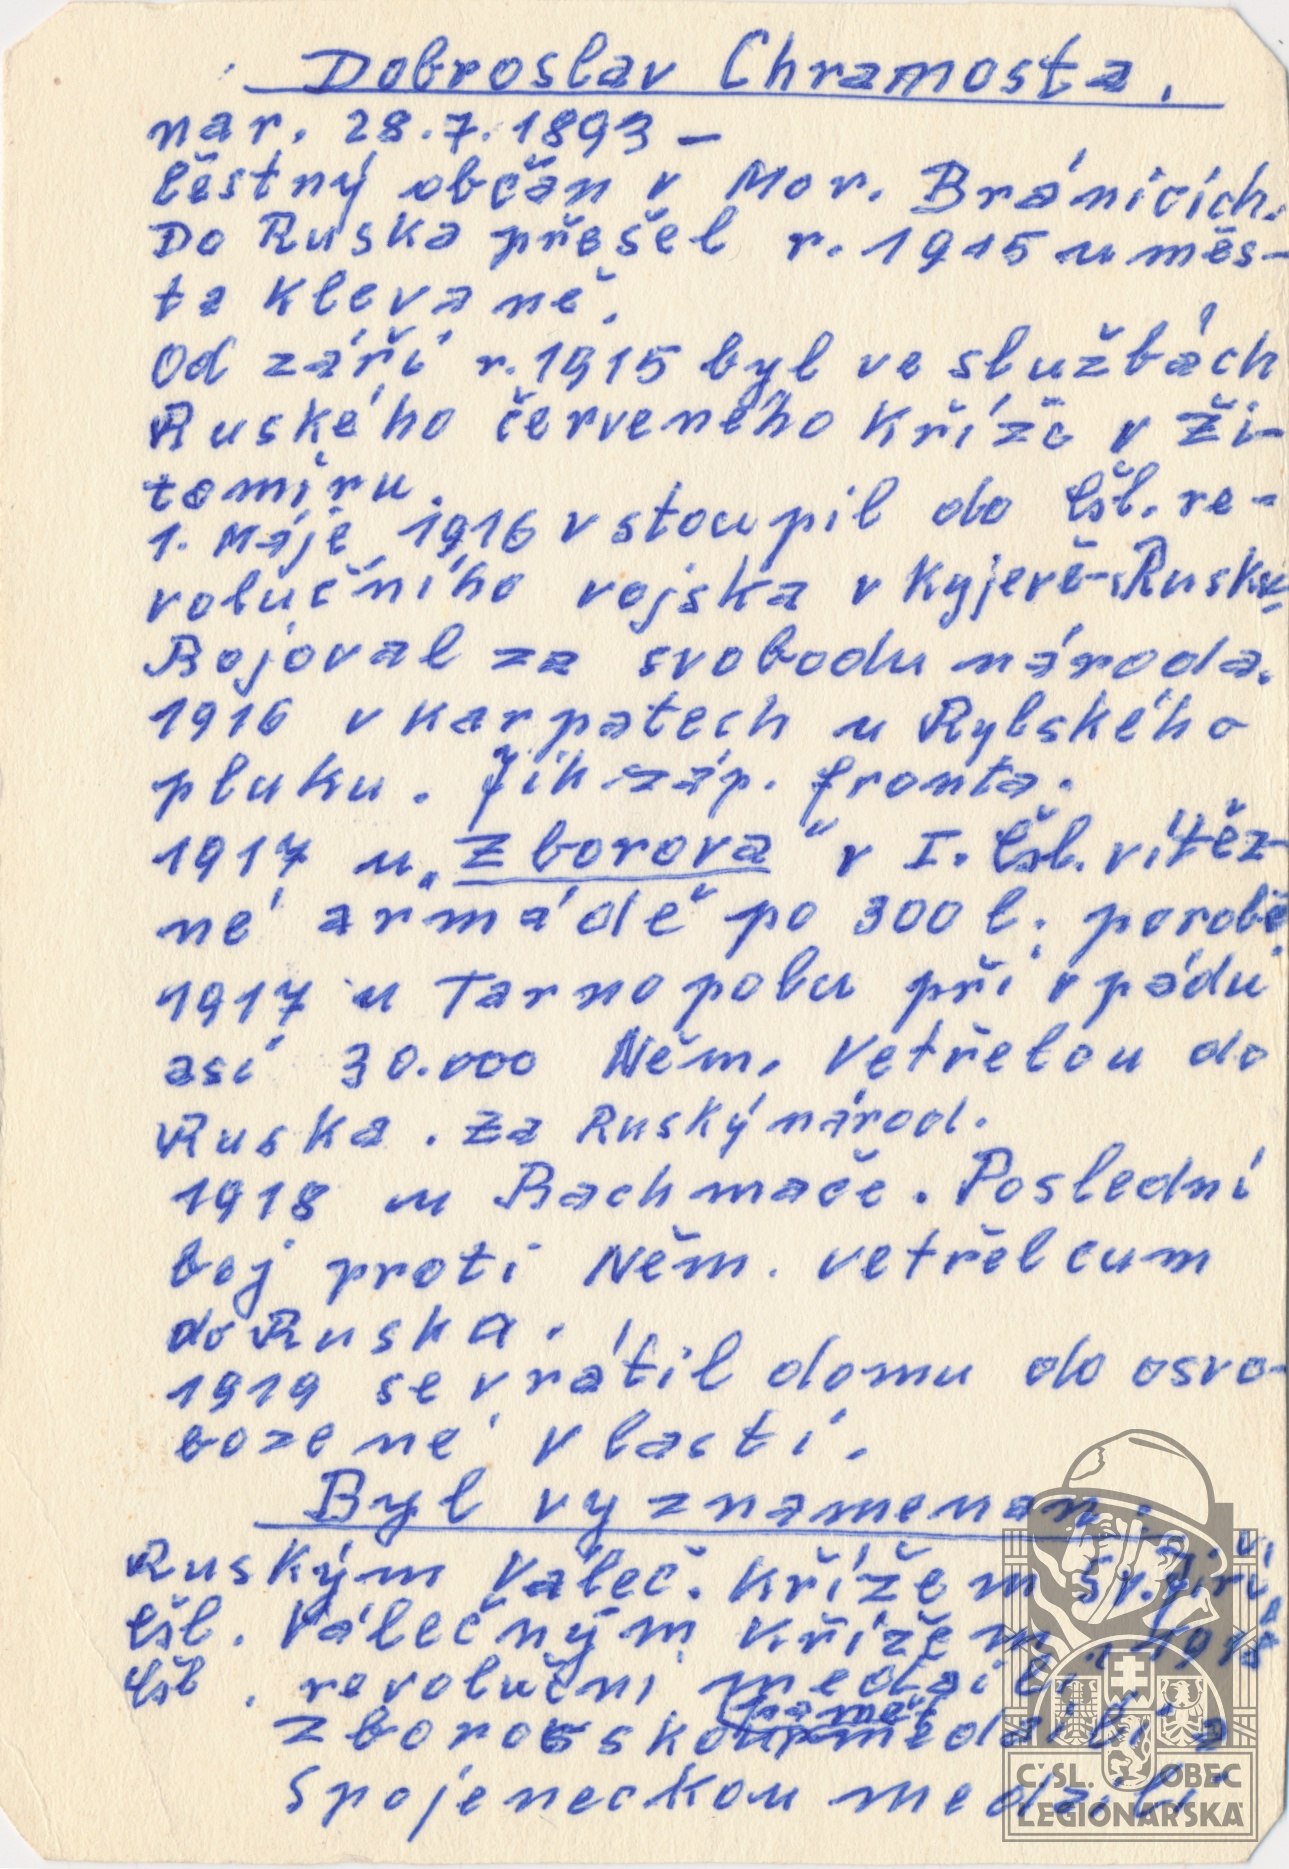 Dobroslav Chramosta.
nar. 28.7.1893 –
čestný občan v Mor. Bránicích.
Do Ruska přešel r. 1915 u měs-
ta Klevaně.
Od září r. 1915 byl ve službách
Ruského červeného Kříže v Ži-
tomíru.
1. Máje 1916 vstoupil do čsl. re-
volučního vojska v Kyjevě-Rusku
Bojoval za svobodu národa.
1916 v Karpatech u Rylského
pluku. Jih-záp. fronta.
1917 u „Zborova" v I. čsl. vítěz-
né armádě po 300 l. porobě.
1917 u Tarnopolu při vpádu
asi 30.000 Něm. Vetřelcu do
Ruska. Za Ruský národ.
1918 u Bachmače. Poslední
boj proti Něm. vetřelcum
do Ruska.
1919 se vrátil domu do osvo-
bozené vlasti.
Byl vyznamenan:
Ruským Váleč. Křížem Sv. Jiří
čsl. Válečným Křížem 1918
čsl. revoluční medailí
pamět
Zborovskou medailí a
Spojeneckou medailí
ČSL. OBEC
LEGIONÁŘSKÁ